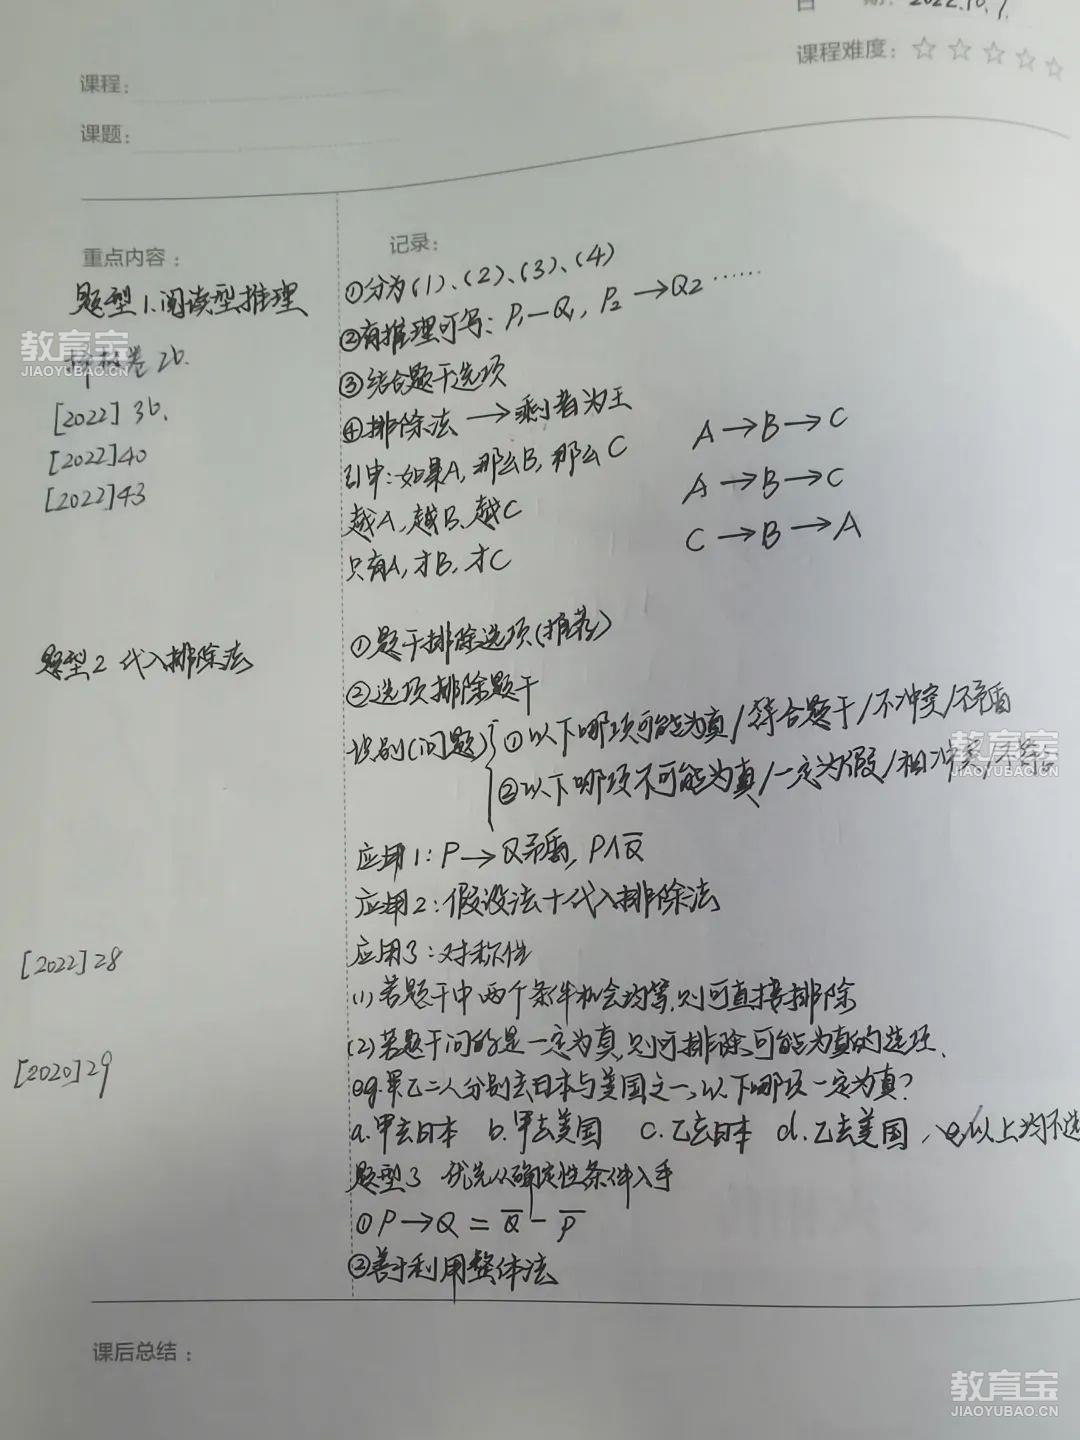 日 期: 2022.10.1.
课程难度: ☆ ☆ ☆ ☆ ☆
课程:
课题:
重点内容：
记录:
题型1.阅读型推理
教育宝
JIAOYUBAO.CN
卷26.
[2022] 36.
[2022]40
[2022]43
①分为(1)、(2)、(3)、(4)
②有推理可写: P₁—Q₁, P₂→Q₂ ……
③结合题干选项
④排除法 → 剩者为王
引申:如果A,那么B,那么C A→B→C
越A,越B、越C A→B→C
只有A,才B,才C C→B→A
题型2 代入排除法
①题干排除选项(推荐)
②选项排除题干
识别(问题){①以下哪项可能为真/符合题干/不冲突/不矛盾
②以下哪项不可能为真/一定为假/相冲突/
教育宝
JIAOYUBAO.CN
应用1: P→Q矛盾, P∧Q̅
应用2:假设法+代入排除法
[2022]28
应用3:对称性
(1)若题干中两个条件机会均等,则可直接排除
(2)若题干问的是一定为真,则可排除可能为真的选项.
[2020]29
eg.甲乙二人分别去日本与美国之一,以下哪项一定为真?
a.甲去日本 b.甲去美国 c.乙去日本 d.乙去美国、e.以上均不选
题型3 优先从确定性条件入手
①P→Q = Q̅—P̅
②善于利用整体法
课后总结：
教育宝
JIAOYUBAO.CN